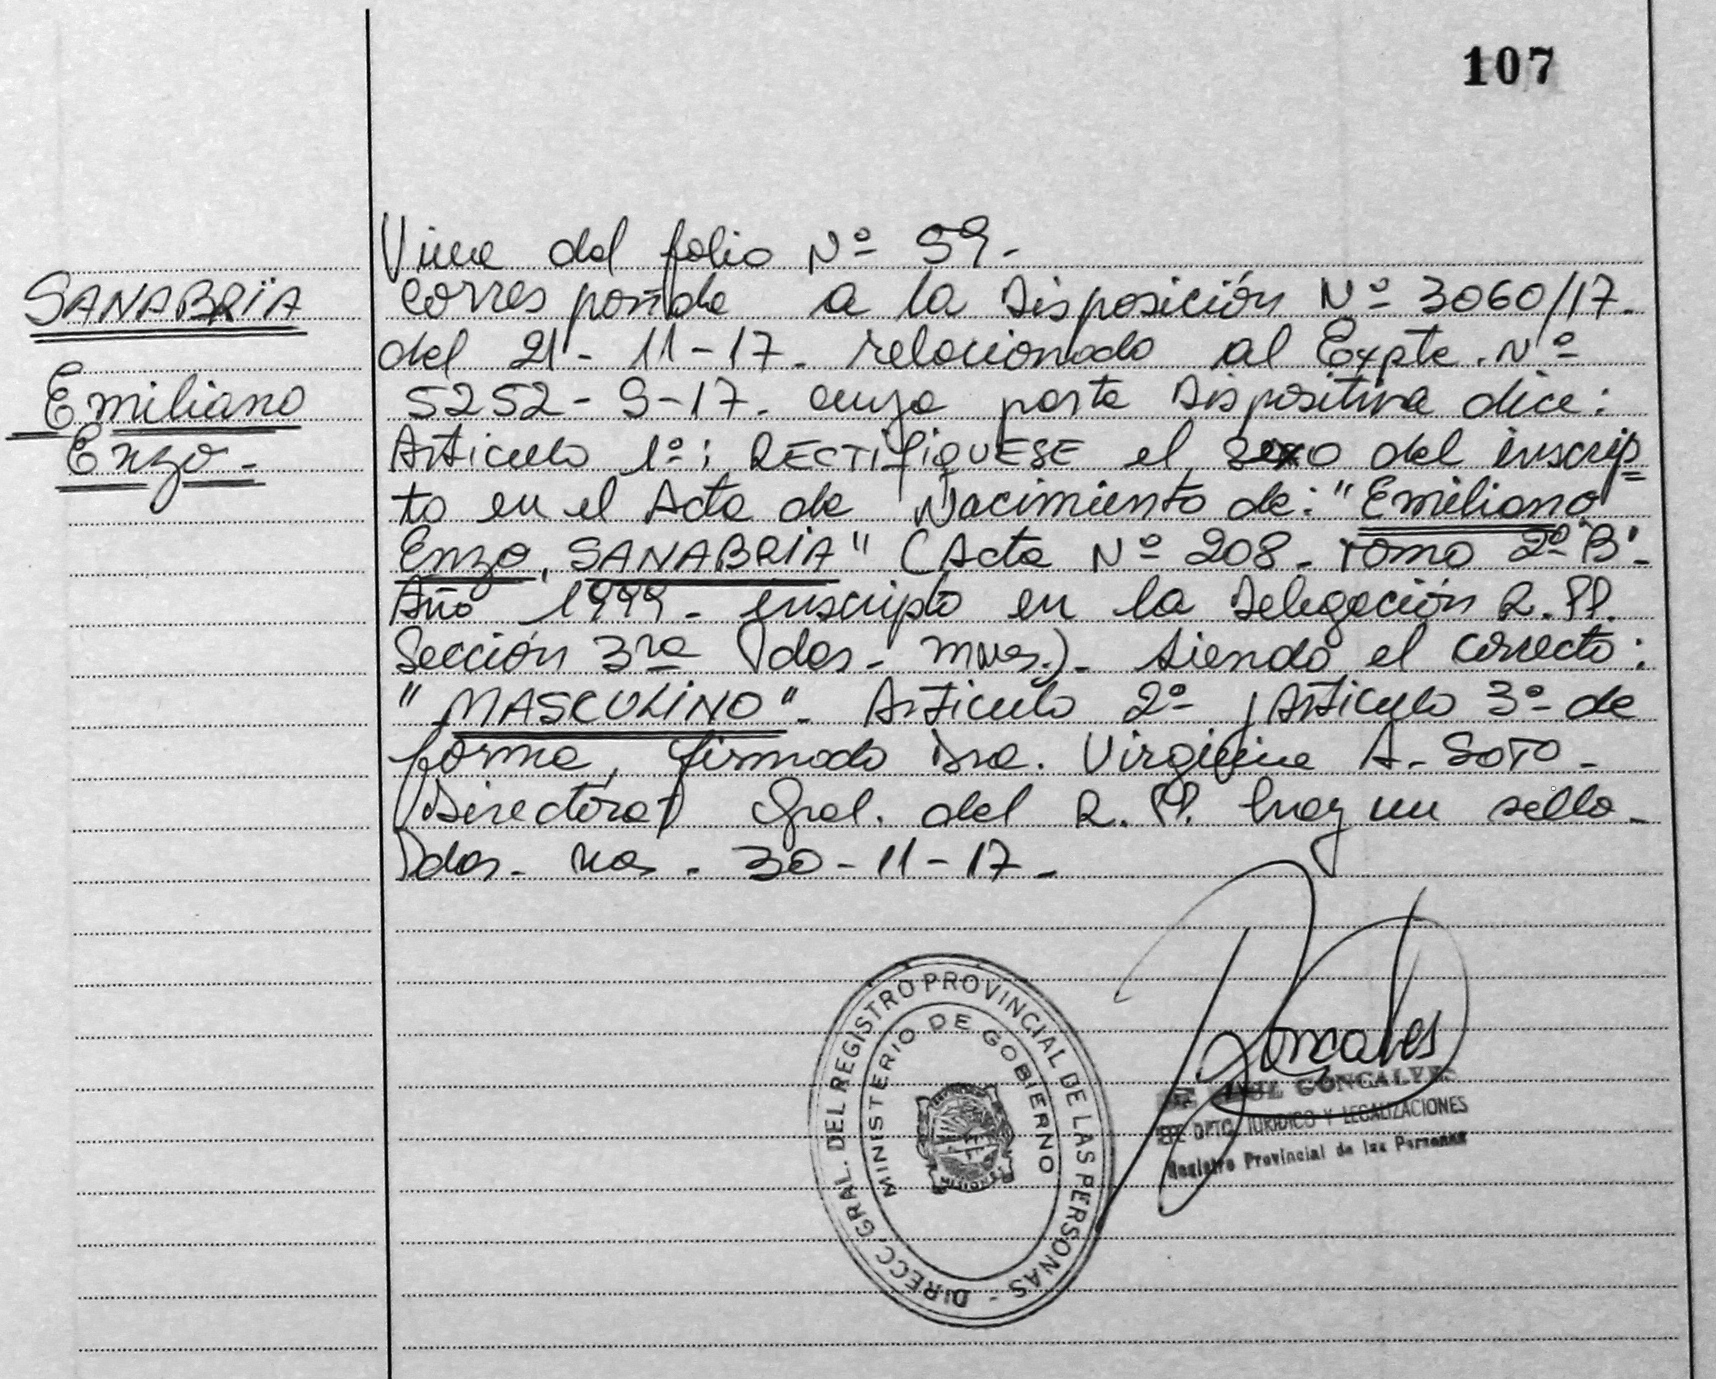 107
Viene del folio Nº 59.
SANABRIA
Emiliano
Enzo.-
corresponde a la Disposición Nº 3060/17.
del 21-11-17. relacionado al Expte. Nº
5252-S-17. cuya parte Dispositiva dice:
Articulo 1º: RECTIFIQUESE el sexo del inscrip=
to en el Acta de Nacimiento de: "Emiliano
Enzo, SANABRIA" (Acta Nº 208. Tomo 2º "B".
Año 1999. inscripto en la Delegación R.PP.
Sección 3ra Pdas. Mnes.). siendo el correcto:
"MASCULINO". Articulo 2º y Articulo 3º de
forma, firmado Dra. Virginia A. SOTO-
(Directora) Gral. del R.PP. hay un sello.
Pdas. Mes. 30-11-17.
Goncalves
GONCALVES
DPTO. JURIDICO Y LEGALIZACIONES
Registro Provincial de las Personas
DIRECC. GRAL. DEL REGISTRO PROVINCIAL DE LAS PERSONAS -
MINISTERIO DE GOBIERNO
MISIONES